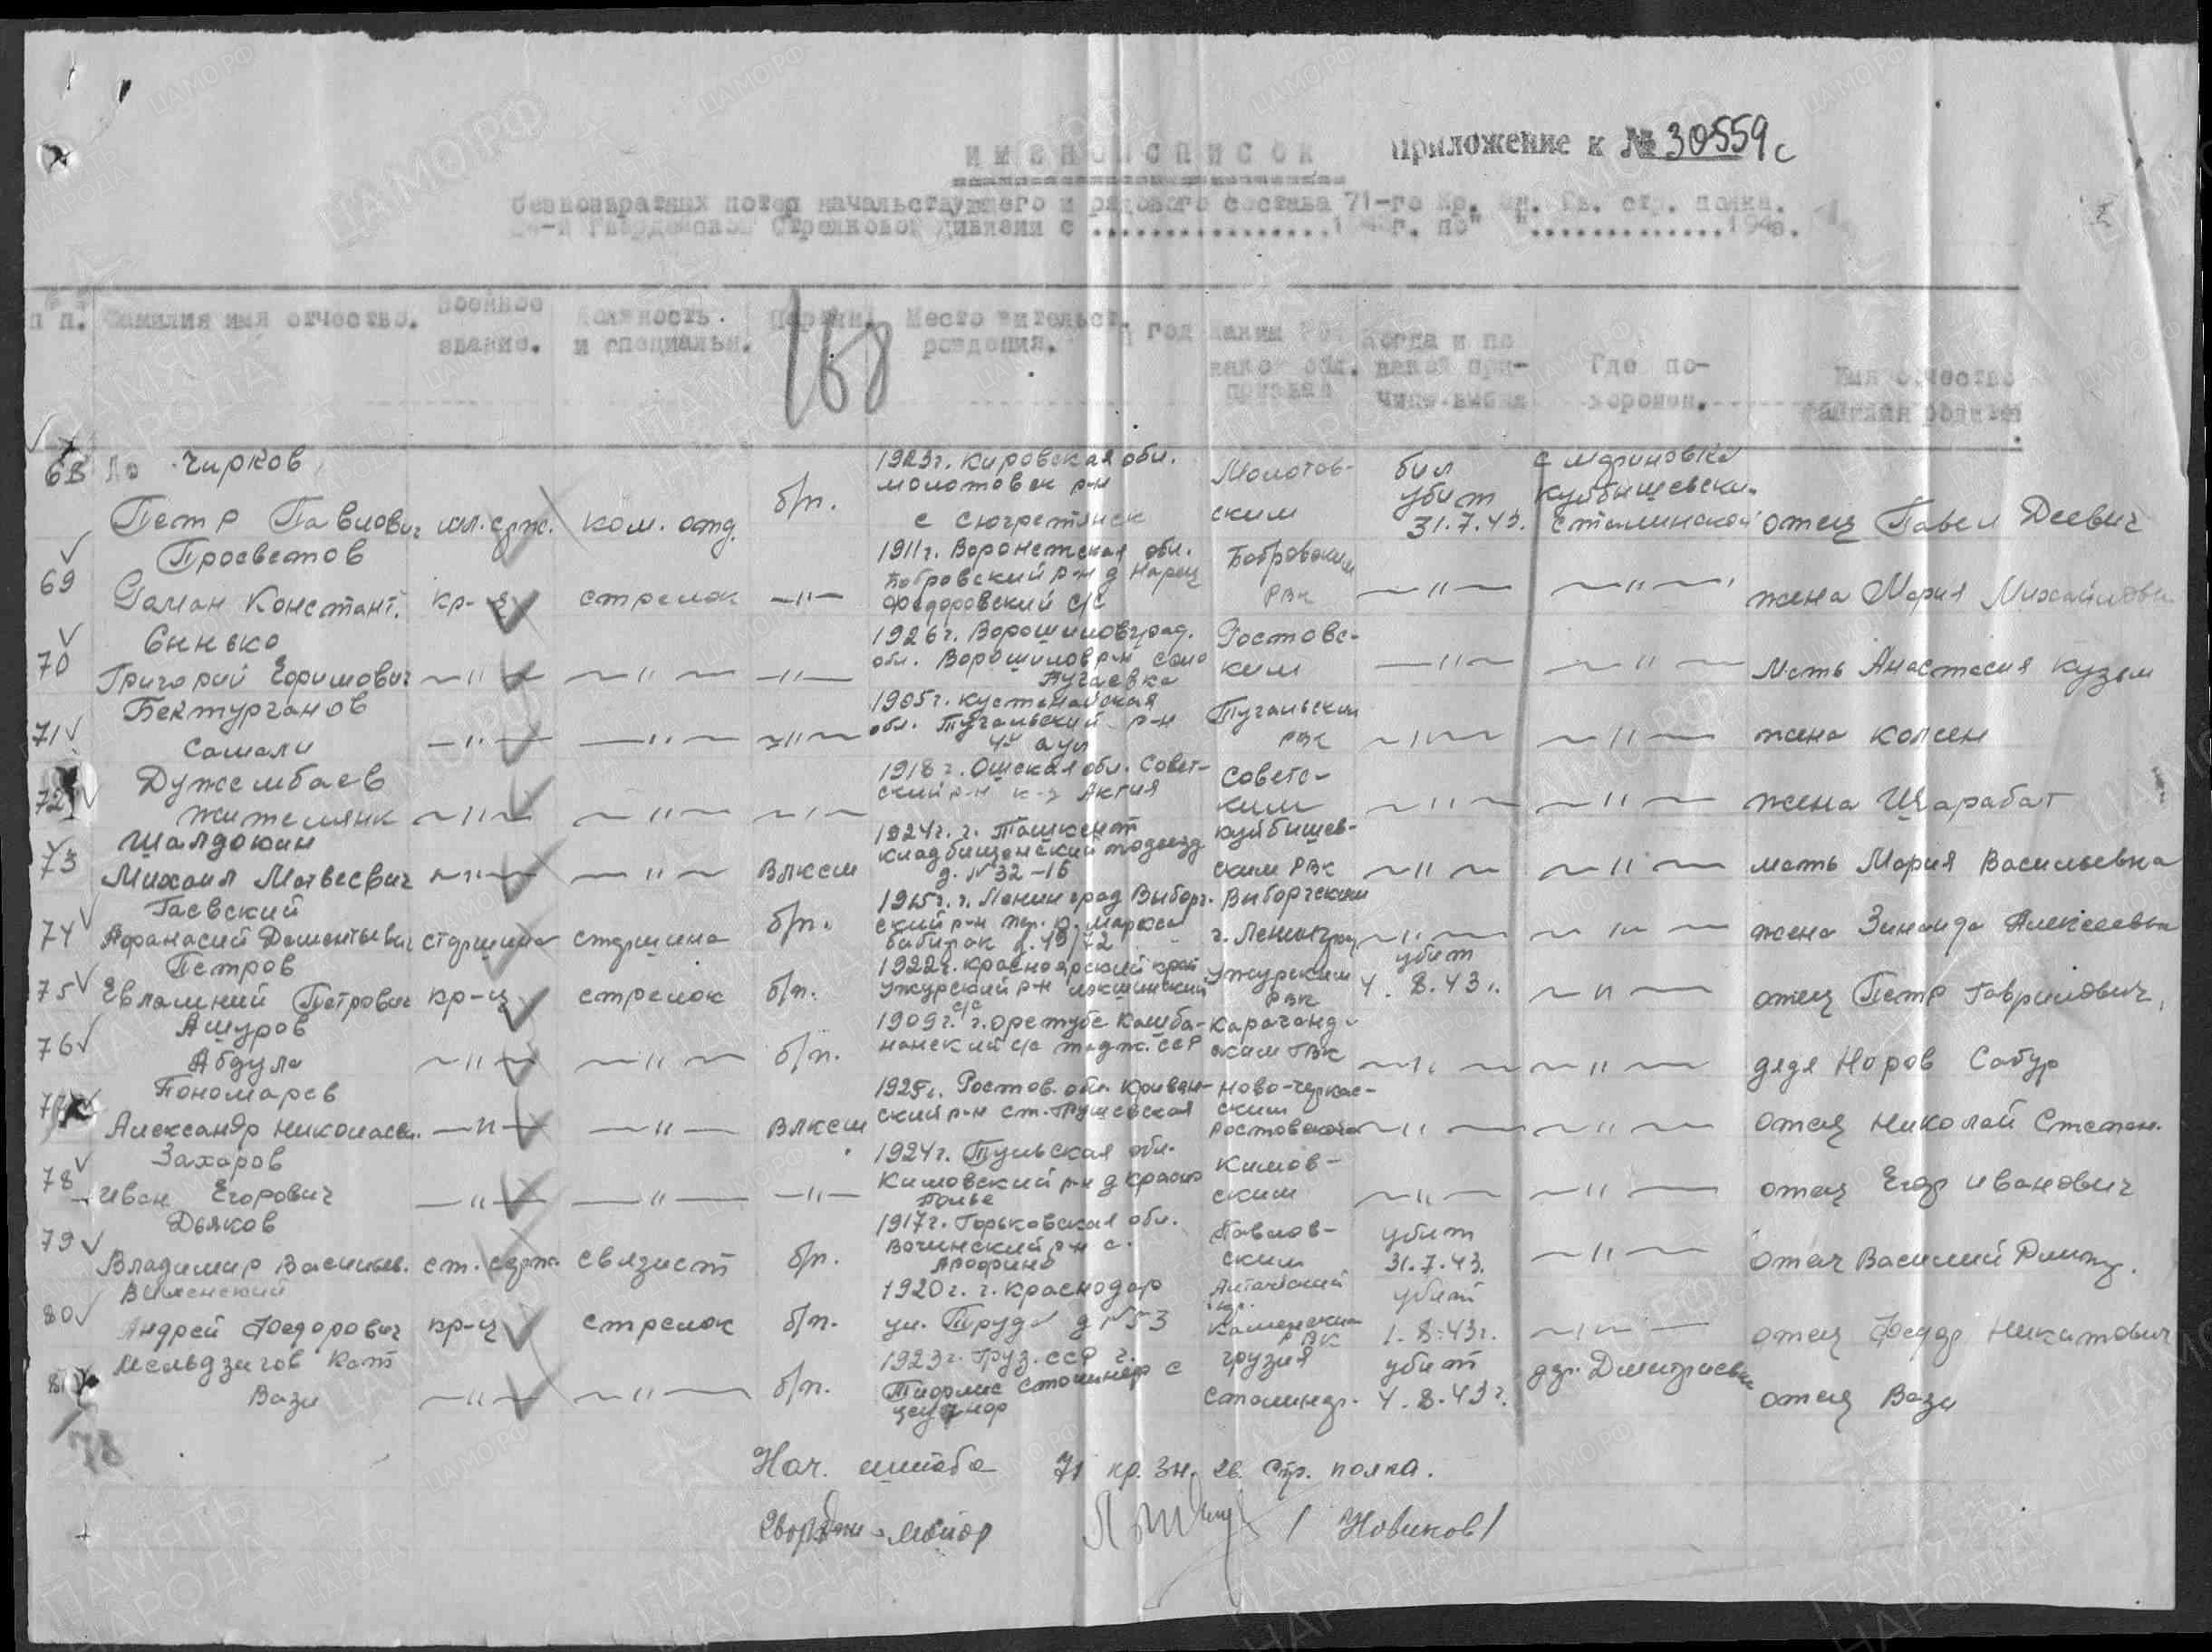 Приложение к № 30559с
ИМЕННОЙ СПИСОК
безвозвратных потерь начальствующего и рядового состава 71-го Кр. Зн. Гв. стр. полка.
Гвардейской Стрелковой дивизии с ................ 194 г. по " " ............. 194 г.
п п. Фамилия имя отчество. Военное звание. Должность и специальн. Партийн. Место жительст. рождения. год Каким РВК какой обл. призван Когда и по какой при-чине выбыл Где по-хоронен. Имя отчество фамилия родствен
168
68 Чирков
Петр Павлович мл. серж. ком. отд. б/п. 1923г. Кировская обл. Молотовск р-н с Молотов-ским был убит 31.7.43. с Мариновка Куйбышевски. Сталинской отец Павел Деевич
69 Просветов
Роман Констант. кр-ц стрелок —"— 1911г. Воронежская обл. Бобровский р-н д Федоровский с/с Бобровским РВК —"— —"— жена Мария Михайловн
70 Сннько
Григорий Ефимович —"— —"— —"— 1926г. Ворошиловград. обл. Ворошилов р-н село Пугаевка Ростовс-ким —"— —"— Мать Анастасия Кузьм
71 Бектурганов
Самали —"— —"— —"— 1905г. Кустанайская обл. Тургайский р-н аул Тургайским РВК —"— —"— жена Колсен
72 Дужембаев
—"— —"— —"— 1918г. Ошская обл. Совет-ский р-н к-з Актия Советс-ким —"— —"— жена Шарабат
73 Шалдокин
Михаил Матвеевич —"— —"— ВЛКСМ 1924г. г. Ташкент Кладбищенский д. № 32-16 Куйбышев-ским РВК —"— —"— мать Мария Васильевна
74 Гаевский
Афанасий Дементьевич старшина старшина б/п. 1915г. г. Ленинград Выборг-ский р-н пер. К. Маркса д. 19/72 Выборгским г. Ленинград —"— —"— жена Зинаида Алексеевна
75 Петров
Евлампий Петрович кр-ц стрелок б/п. 1922г. Красноярский край Ужурский р-н с/с Ужурским РВК убит 4.8.43г. —"— отец Петр Гаврилович,
76 Ашуров
Абдула —"— —"— б/п. 1909г. с/с Тадж. ССР Караганд-ским ГВК —"— —"— дядя Норов Сабур
77 Пономарев
Александр Николаеви. —"— —"— ВЛКСМ 192 г. Ростов. обл. Кривян-ский р-н ст. Грушевская Ново-Черкас-ским Ростовской —"— —"— отец Николай Степан.
78 Захаров
Иван Егорович —"— —"— —"— 1924г. Тульская обл. Кимовский р-н д Красно Полье Кимов-ским —"— —"— отец Егор Иванович
79 Дьяков
Владимир Васильев. ст. серж. связист б/п. 1917г. Горьковская обл. Вачинский р-н с. Арефино Павлов-ским убит 31.7.43. —"— отец Василий Дмитр.
80 Виленский
Андрей Федорович кр-ц стрелок б/п. 1920г. г. Краснодар ул. Труда д № 53 Алтайский кр. Каменским РВК убит 1.8.43г. —"— отец Федор Никитович
81 Мельдзигов Кат
Вази —"— —"— б/п. 1923г. Груз. ССР г. Тифлис Сталинир с Грузия Сталинир. убит 4.8.43г. дер. Дмитриевка отец Вази
78
Нач. штаба 71 кр. Зн. гв. стр. полка.
Гвардии майор / Новиков /